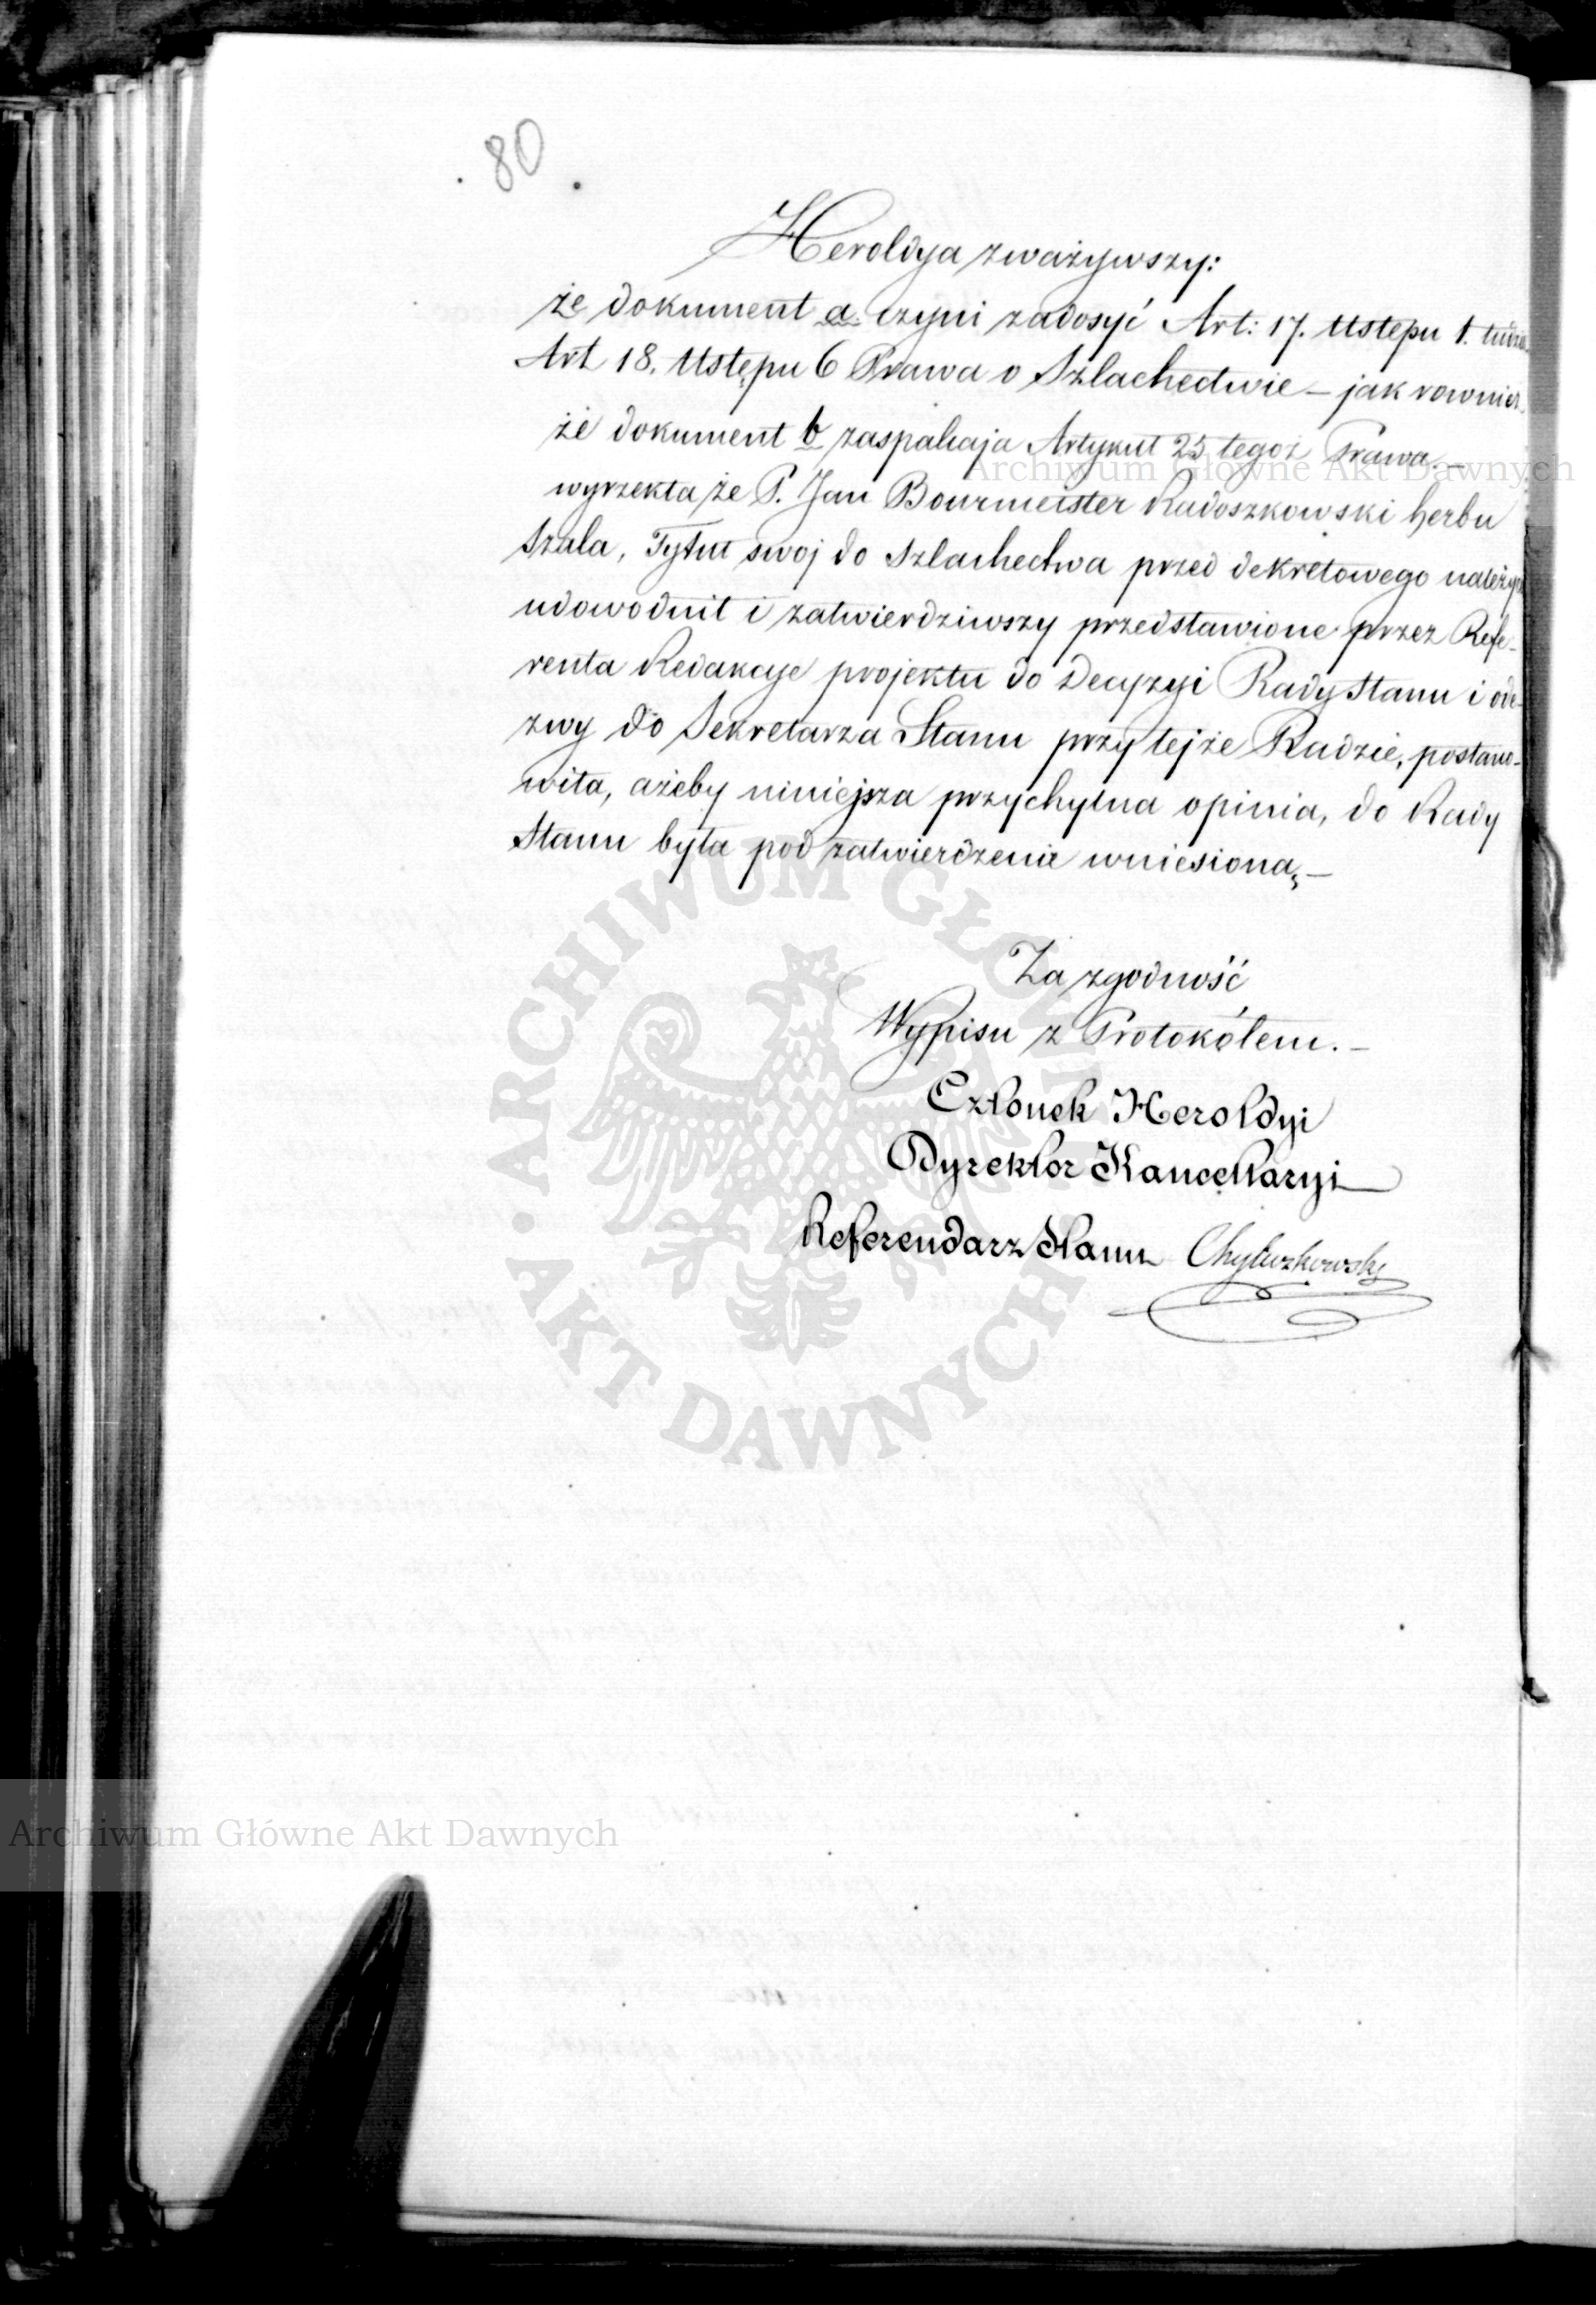 80
Heroldya zważywszy:
że dokument a. czyni zadosyć Art: 17. Ustępu 1. tudzie.
Art 18. Ustępu 6 Prawa o Szlachectwie – jak rownier.
że dokument b zaspakaja Artykuł 25 tegoż Prawa. –
wyrzekła że P. Jan Bourmeister Radoszkowski herbu
Szala, Tytuł swoj do Szlachectwa przed dekretowego należyci
udowodnił i zatwierdziwszy przedstawione przez Refe-
renta Redakcye projektu do Decyzyi Rady Stanu i ode-
zwy do Sekretarza Stanu przy tejże Radzie, postano-
wiła, ażeby niniejsza przychylna opinia, do Rady
Stanu była pod zatwierdzenie wniesioną, –
Za zgodność
Wypisu z Protokółem. –
Członek Heroldyi
Dyrektor Kancellaryi
Referendarz Stanu
Archiwum Główne Akt Dawnych
ARCHIWUM GŁÓWNE · AKT DAWNYCH ·
Archiwum Główne Akt Dawnych